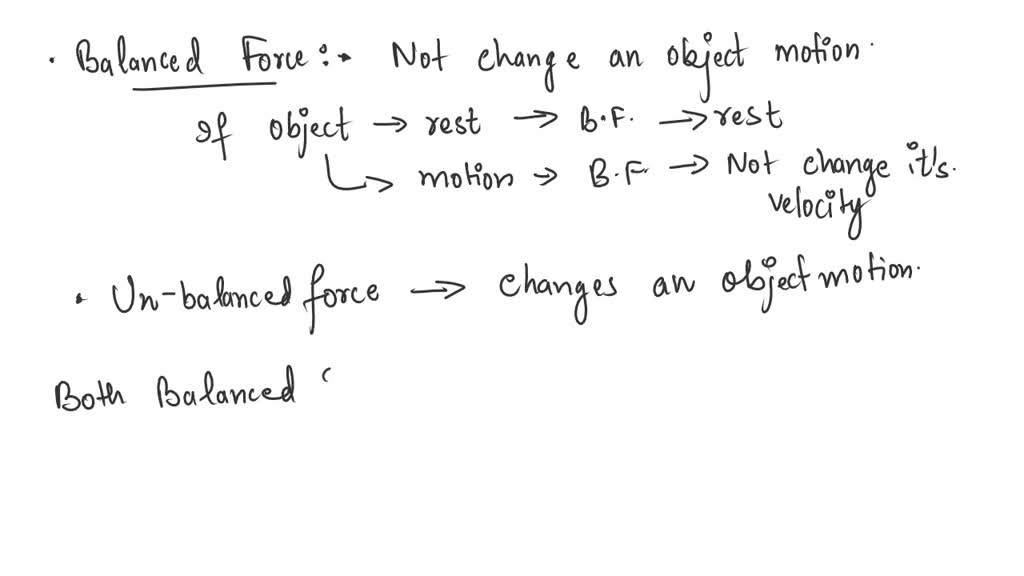 · Balanced Force :- Not change an object motion.
If object → rest → B.F. → rest
↳ motion → B.F. → Not change it's.
velocity
· Un-balanced force → changes an object motion.
Both Balanced (